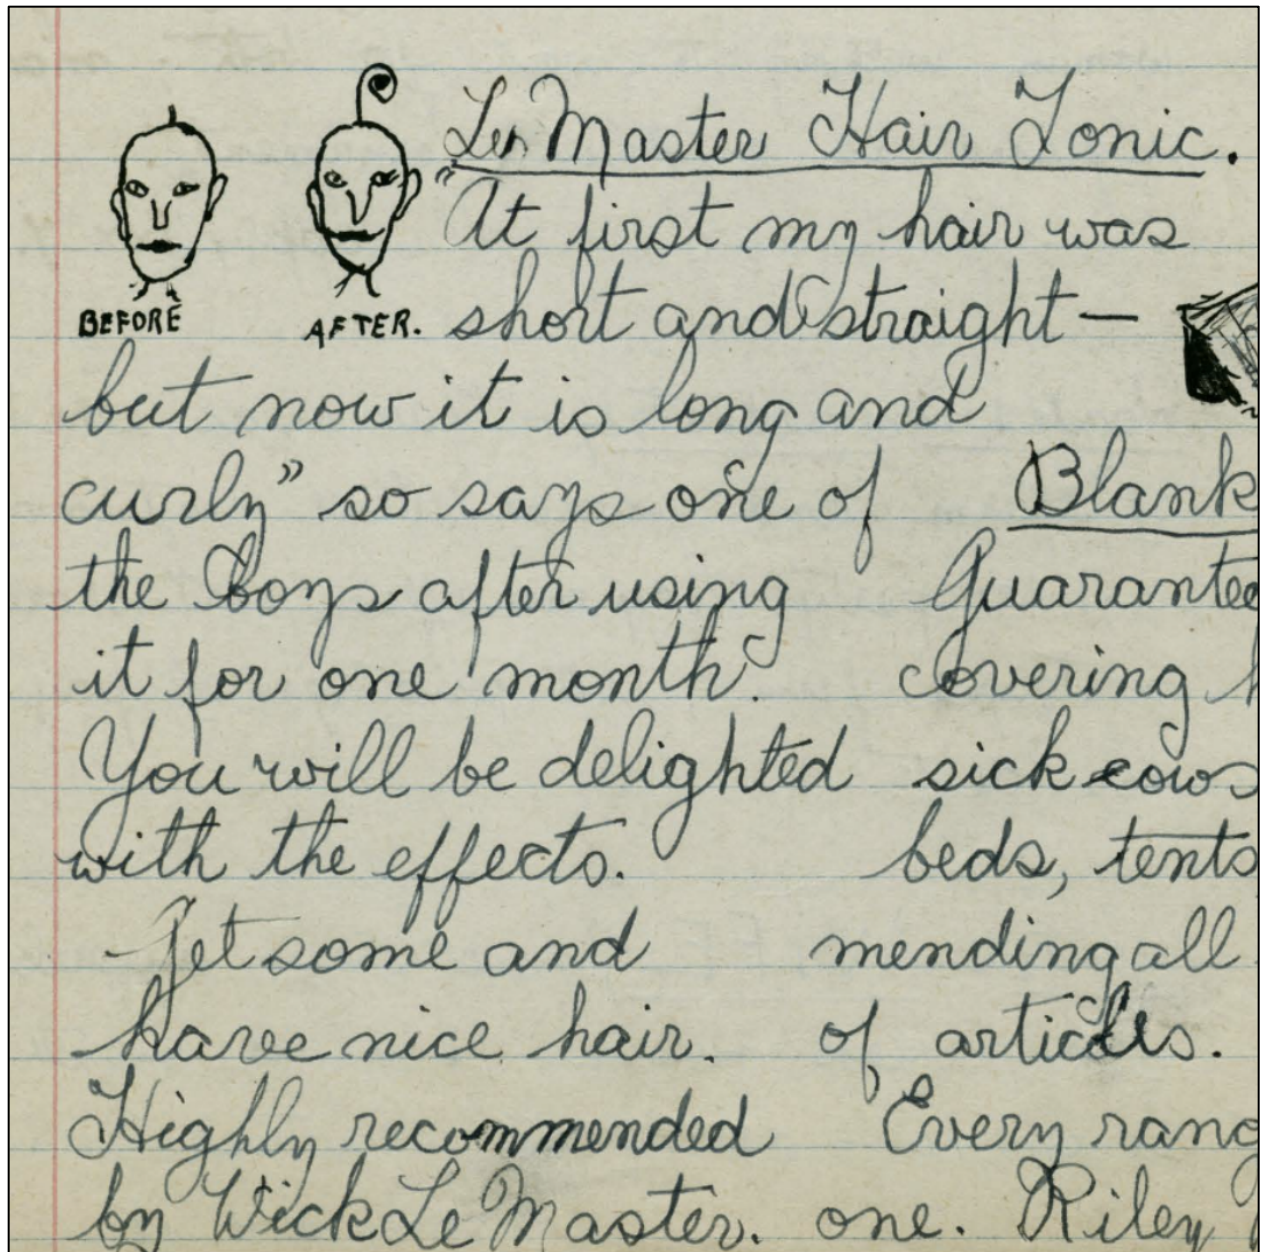 Le Master Hair Tonic.
"At first my hair was
short and straight—
BEFORE AFTER.
but now it is long and
curly" so says one of
the boys after using
it for one month.
You will be delighted
with the effects.
Get some and
have nice hair.
Highly recommended
by Wick Le Master.
Blank
Guarantee
covering
sick cows
beds, tents
mending all
of articles.
Every rang
one. Riley